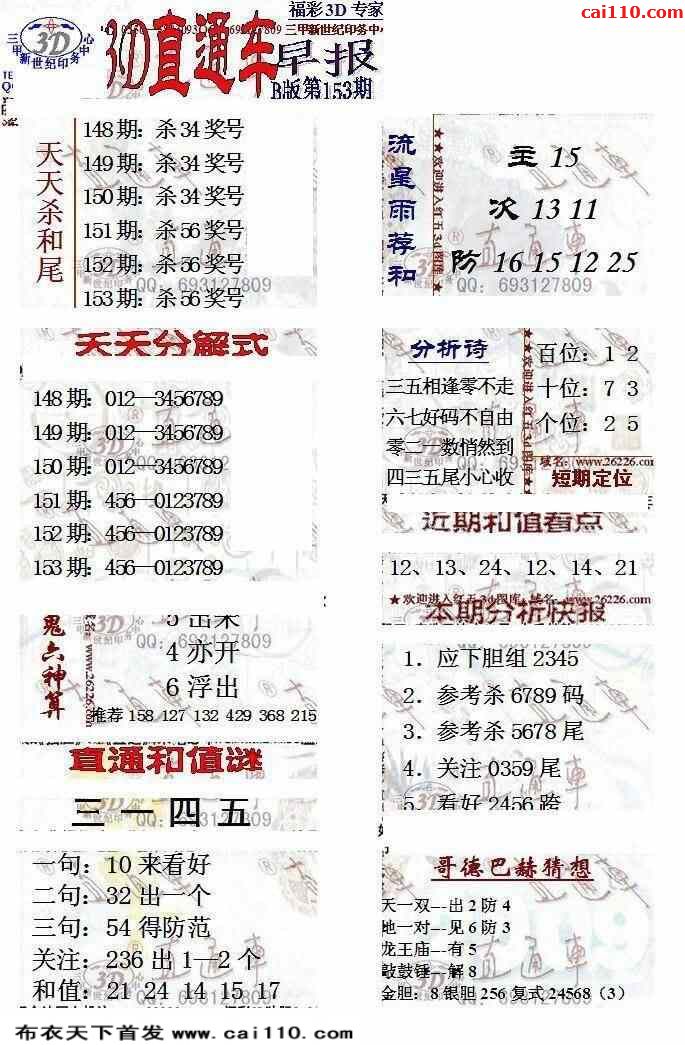 福彩3D专家
cai110.com
三甲新世纪印务中心
3D
3D直通车
早报
B版第153期
天天杀和尾
148期：杀34奖号
149期：杀34奖号
150期：杀34奖号
151期：杀56奖号
152期：杀56奖号
153期：杀56奖号
流星雨荐和
★★欢迎进入红五3d图库★
主 15
次 13 11
防 16 15 12 25
QQ：693127809
天天分解式
148期：012—3456789
149期：012—3456789
150期：012—3456789
151期：456—0123789
152期：456—0123789
153期：456—0123789
分析诗
三五相逢零不走
六七好码不自由
零二一数悄然到
四三五尾小心收
百位：1 2
十位：7 3
个位：2 5
域名：www.26226.com
短期定位
近期和值看点
12、13、24、12、14、21
★欢迎进入红五3d图库 域名：www.26226.com
本期分析快报
1．应下胆组 2345
2．参考杀 6789 码
3．参考杀 5678 尾
4．关注 0359 尾
5．看好 2456 跨
鬼六神算
www.26226.com
QQ：693127809
4 亦开
6 浮出
推荐 158 127 132 429 368 215
直通和值谜
三一四五
QQ：693127809
一句：10 来看好
二句：32 出一个
三句：54 得防范
关注：236 出 1—2 个
和值：21 24 14 15 17
哥德巴赫猜想
天一双---出 2 防 4
地一对---见 6 防 3
龙王庙---有 5
敲鼓锤---解 8
金胆：8 银胆 256 复式 24568（3）
布衣天下首发 www.cai110.com